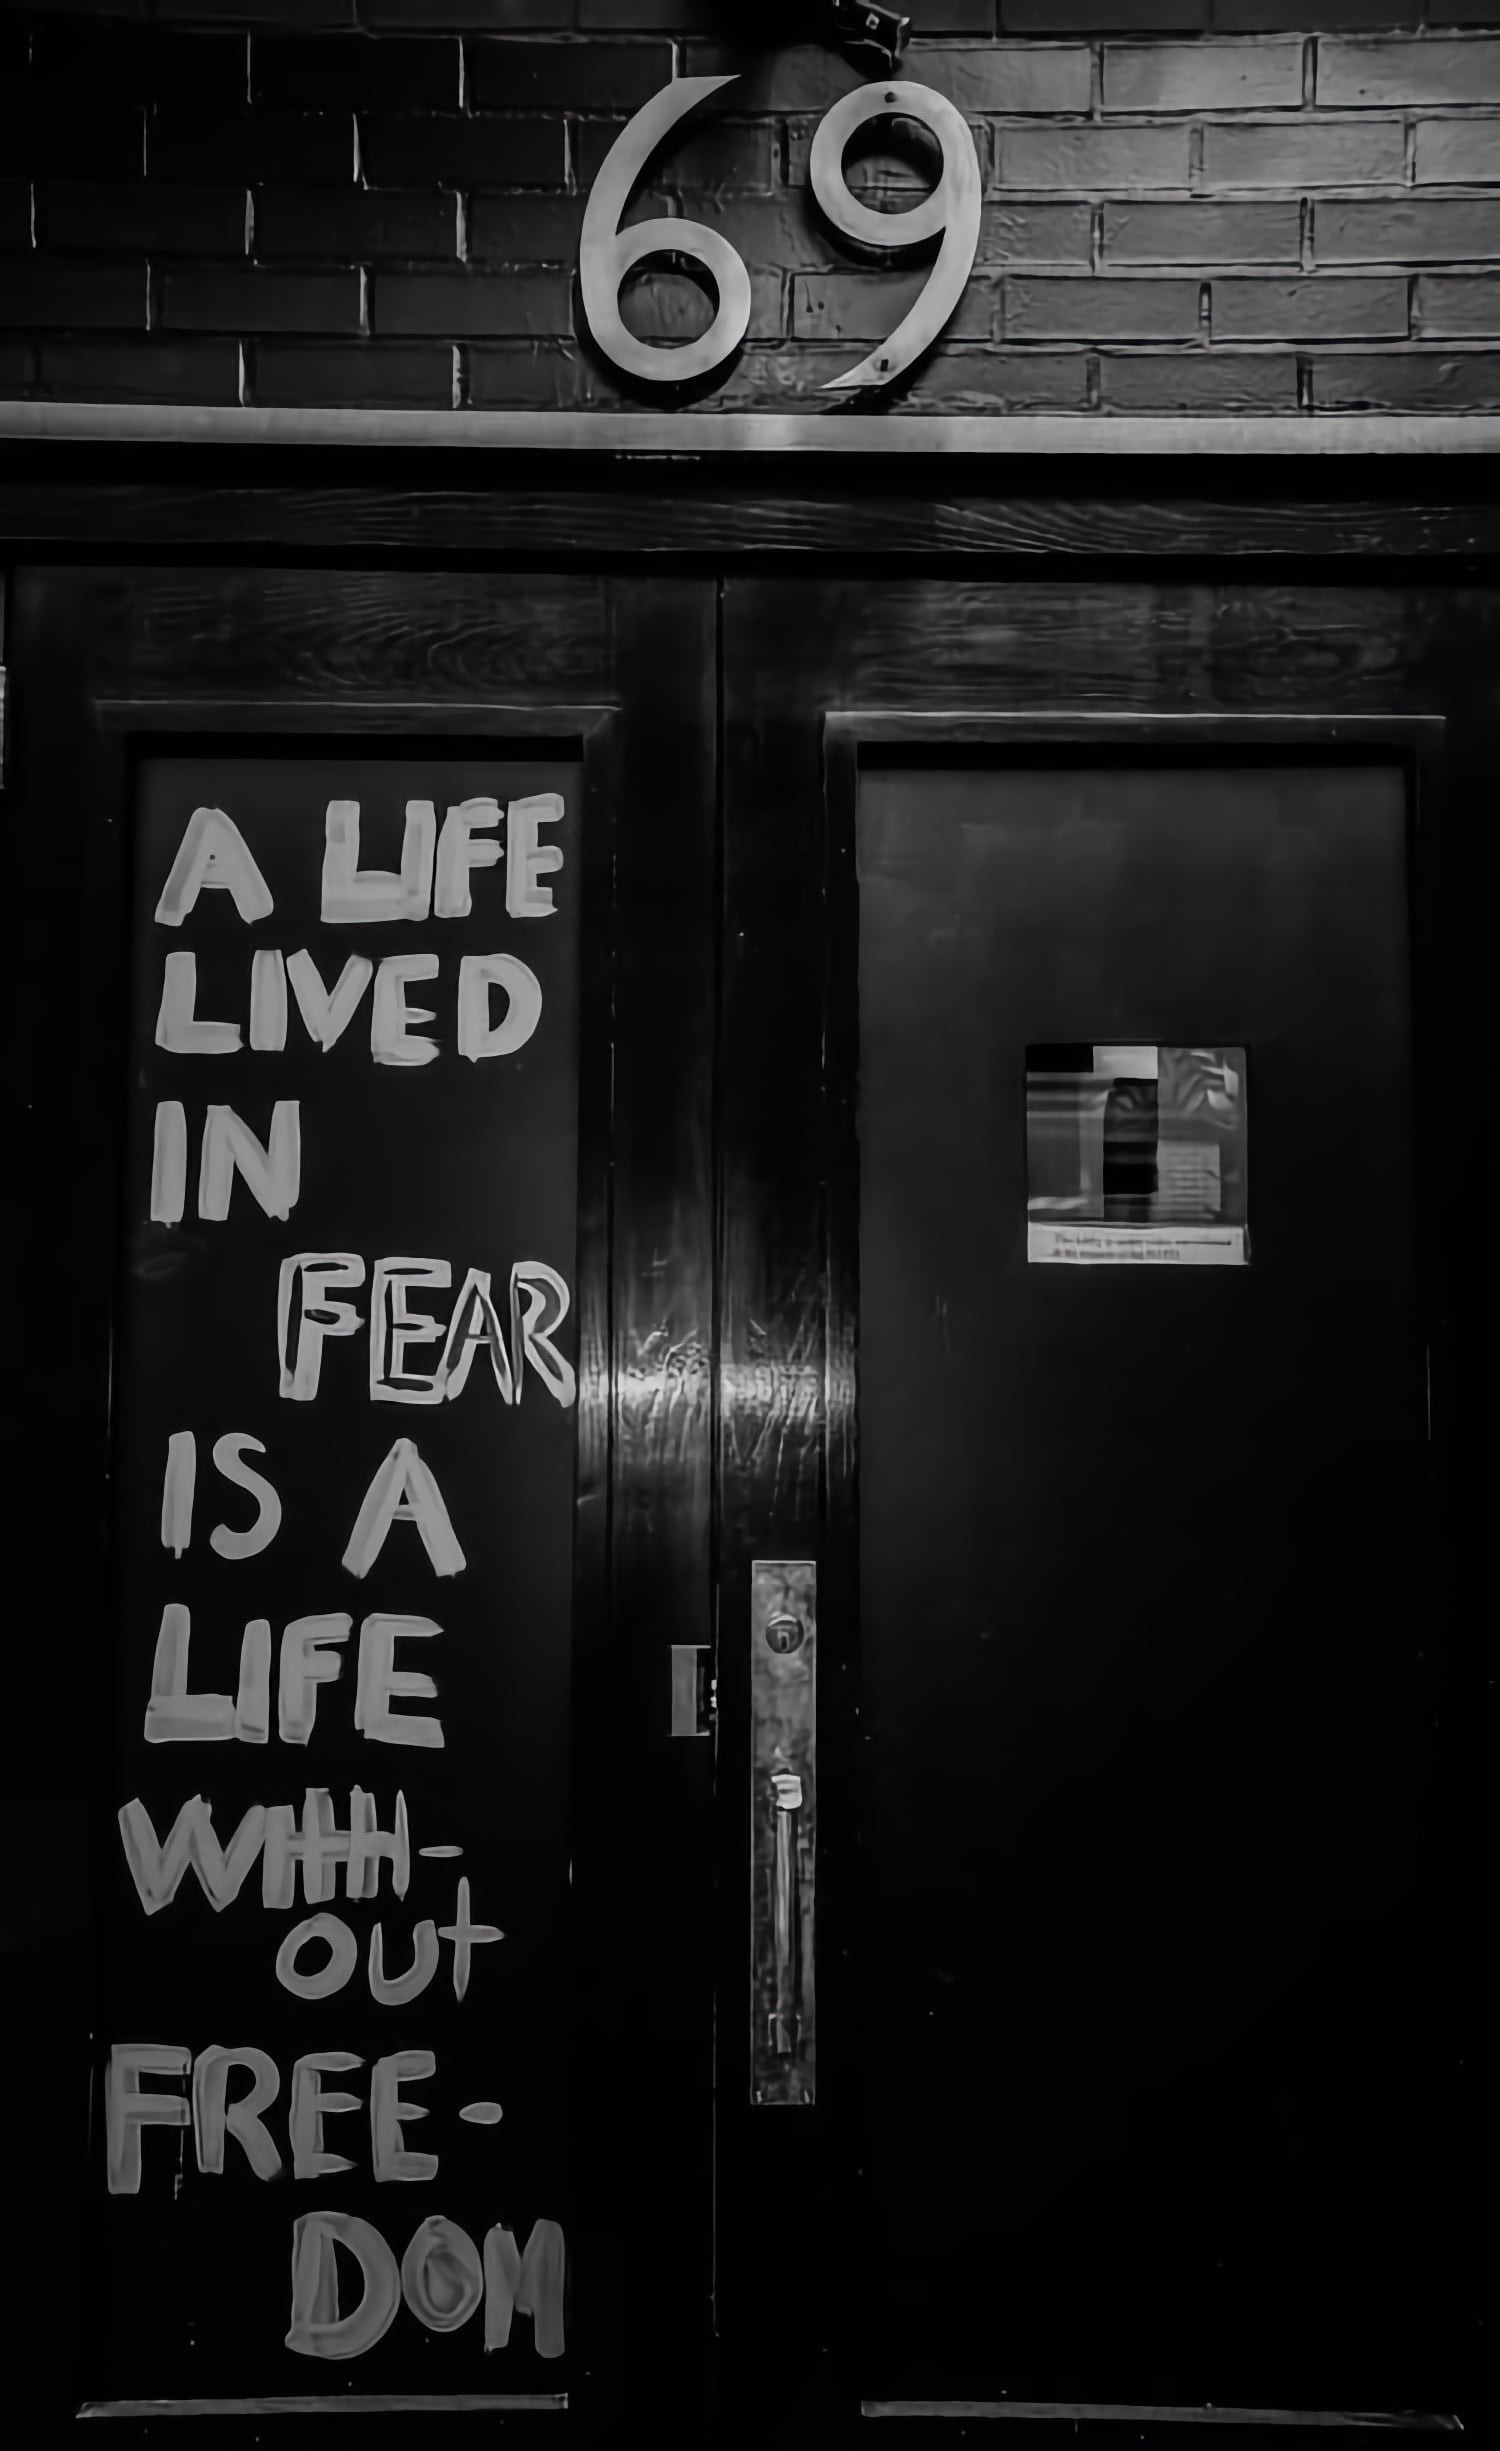 69
A LIFE
LIVED
IN
FEAR
IS A
LIFE
WITH-
out
FREE-
DOM